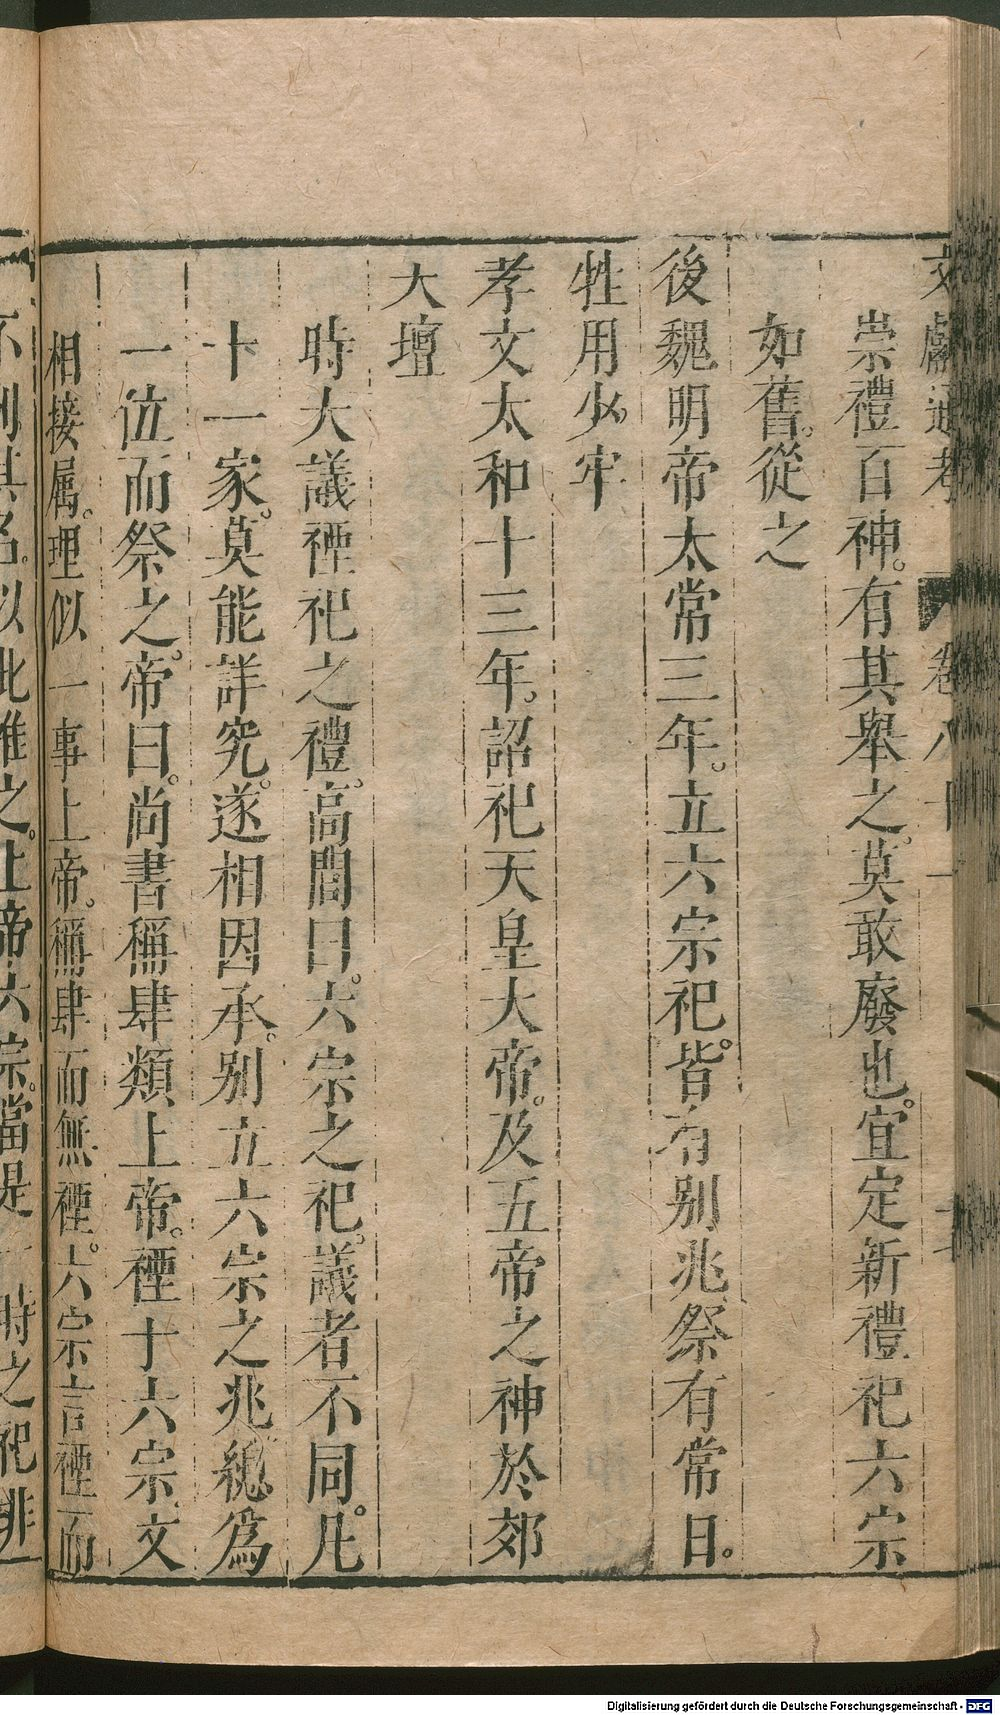 文獻通考 卷八十一 十七
崇禮百神。有其舉之。莫敢廢也。宜定新禮祀六宗
如舊。從之
後魏明帝太常三年。立六宗祀。皆有别兆祭有常日。
牲用少牢
孝文太和十三年。詔祀天皇大帝。及五帝之神於郊
大壇
時大議禋祀之禮。高閭曰。六宗之祀。議者不同。凡
十一家。莫能詳究。遂相因承。别立六宗之兆總爲
一位而祭之。帝曰。尚書稱肆類上帝。禋于六宗文
相接属。理似一事上帝。稱肆而無禋。六宗言禋而
不别其名。以此推之。上帝六宗。當是一時之祀非
Digitalisierung gefördert durch die Deutsche Forschungsgemeinschaft - DFG